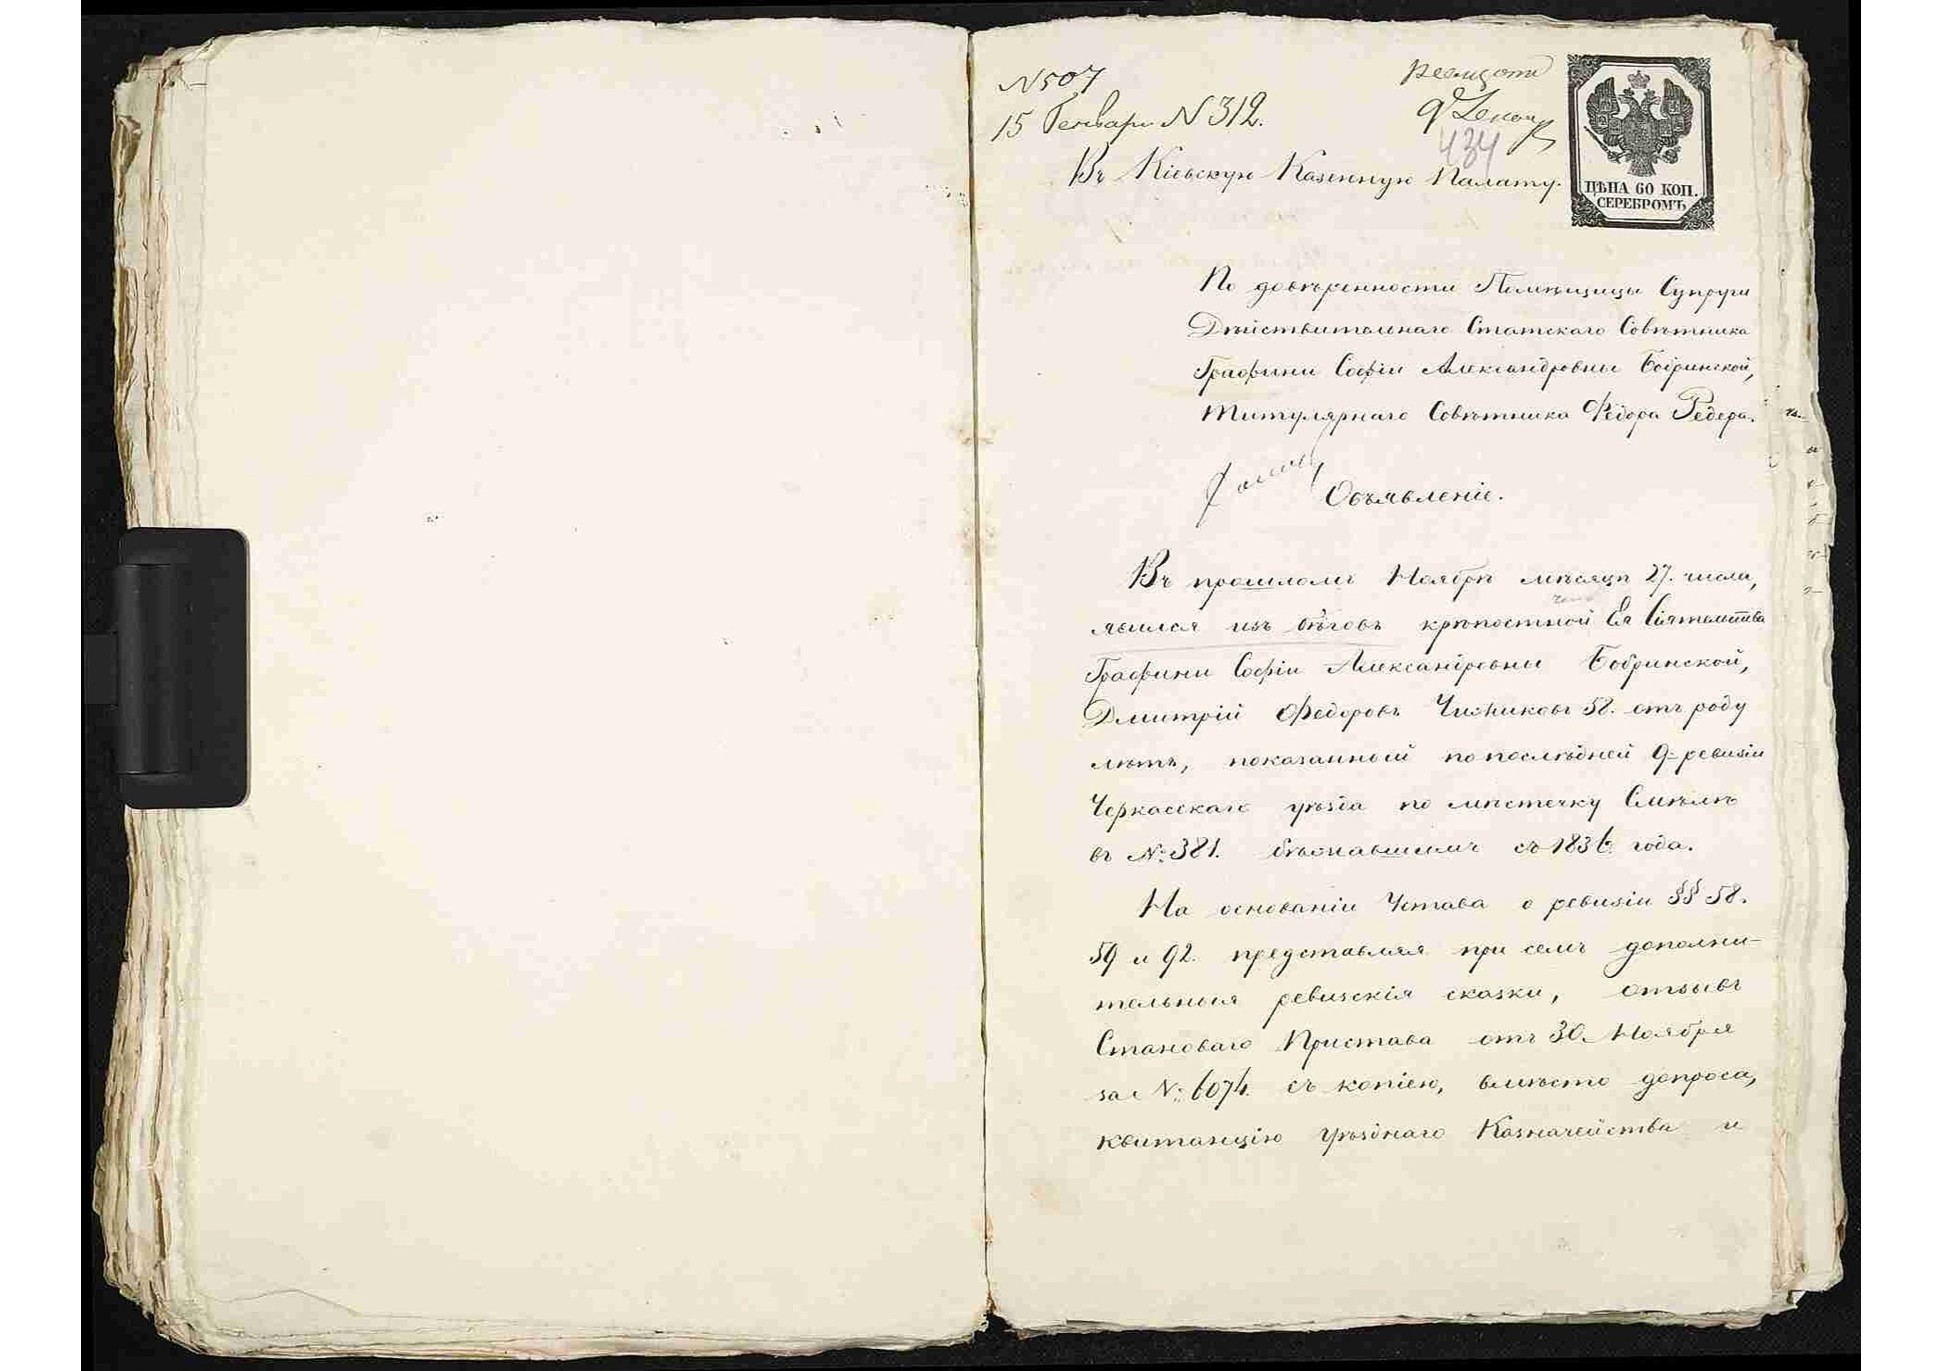 N 507
15 Генваря N 312.
434
Въ Кіевскую Казенную Палату.
ЦѢНА 60 КОП.
СЕРЕБРОМЪ
По довѣренности Помѣщицы Супруги
Дѣйствительнаго Статскаго Совѣтника
Графини Софіи Александровны Бобринской,
Титулярнаго Совѣтника Фёдора Рёдера.
Объявленіе.
Въ прошломъ Ноябрѣ мѣсяцѣ 27. числа,
явился изъ бѣговъ крѣпостной Ея Сіятельства
Графини Софіи Александровны Бобринской,
Дмитрій Федоровъ Чижиковъ 58. отъ роду
лѣтъ, показанный по послѣдней 9-ревизіи
Черкасскаго уѣзда по мѣстечку Смѣлѣ
въ №: 381. бѣжавшимъ съ 1836. года.
На основаніи Устава о ревизіи §§ 58.
59 и 92. представляя при семъ дополни-
тельныя ревизскія сказки, отзывъ
Становаго Пристава отъ 30. Ноября
за №: 6074. съ копіею, вмѣсто допроса,
квитанцію уѣзднаго Казначейства и